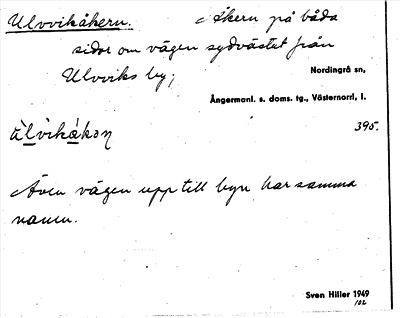 Ulvvikåkern. Åkern på båda
sidor om vägen sydvästet från
Ulvviks by;
Nordingrå sn,
Ångermanl. s. doms. tg., Västernorrl, l.
395.
Även vägen upp till byn har samma
namn.
Sven Hiller 1949
102